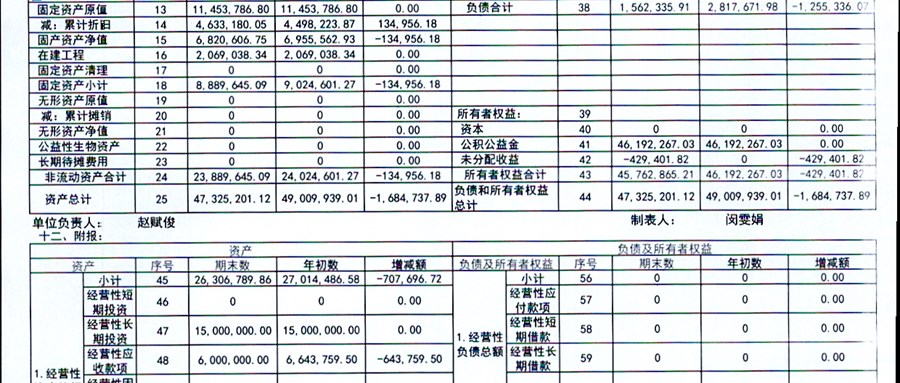 固定资产原值 13 11,453,786.80 11,453,786.80 0.00 负债合计 38 1,562,335.91 2,817,671.98 -1,255,336.07
减：累计折旧 14 4,633,180.05 4,498,223.87 134,956.18
固定资产净值 15 6,820,606.75 6,955,562.93 -134,956.18
在建工程 16 2,069,038.34 2,069,038.34 0.00
固定资产清理 17 0 0 0.00
固定资产小计 18 8,889,645.09 9,024,601.27 -134,956.18
无形资产原值 19 0 0 0.00
减：累计摊销 20 0 0 0.00 所有者权益： 39
无形资产净值 21 0 0 0.00 资本 40 0 0 0.00
公益性生物资产 22 0 0 0.00 公积公益金 41 46,192,267.03 46,192,267.03 0.00
长期待摊费用 23 0 0 0.00 未分配收益 42 -429,401.82 0 -429,401.82
非流动资产合计 24 23,889,645.09 24,024,601.27 -134,956.18 所有者权益合计 43 45,762,865.21 46,192,267.03 -429,401.82
资产总计 25 47,325,201.12 49,009,939.01 -1,684,737.89 负债和所有者权益
总计 44 47,325,201.12 49,009,939.01 -1,684,737.89
单位负责人： 赵赋俊 制表人： 闵雯娟
十二、附报：
资产 负债及所有者权益
资产 序号 期末数 年初数 增减额 负债及所有者权益 序号 期末数 年初数 增减额
小计 45 26,306,789.86 27,014,486.58 -707,696.72 小计 56 0 0 0.00
经营性短
期投资 46 0 0 0.00 经营性应
付款项 57 0 0 0.00
经营性长
期投资 47 15,000,000.00 15,000,000.00 0.00 1.经营性
负债总额 经营性短
期借款 58 0 0 0.00
经营性应
收款项 48 6,000,000.00 6,643,759.50 -643,759.50 经营性长
期借款 59 0 0 0.00
1.经营性